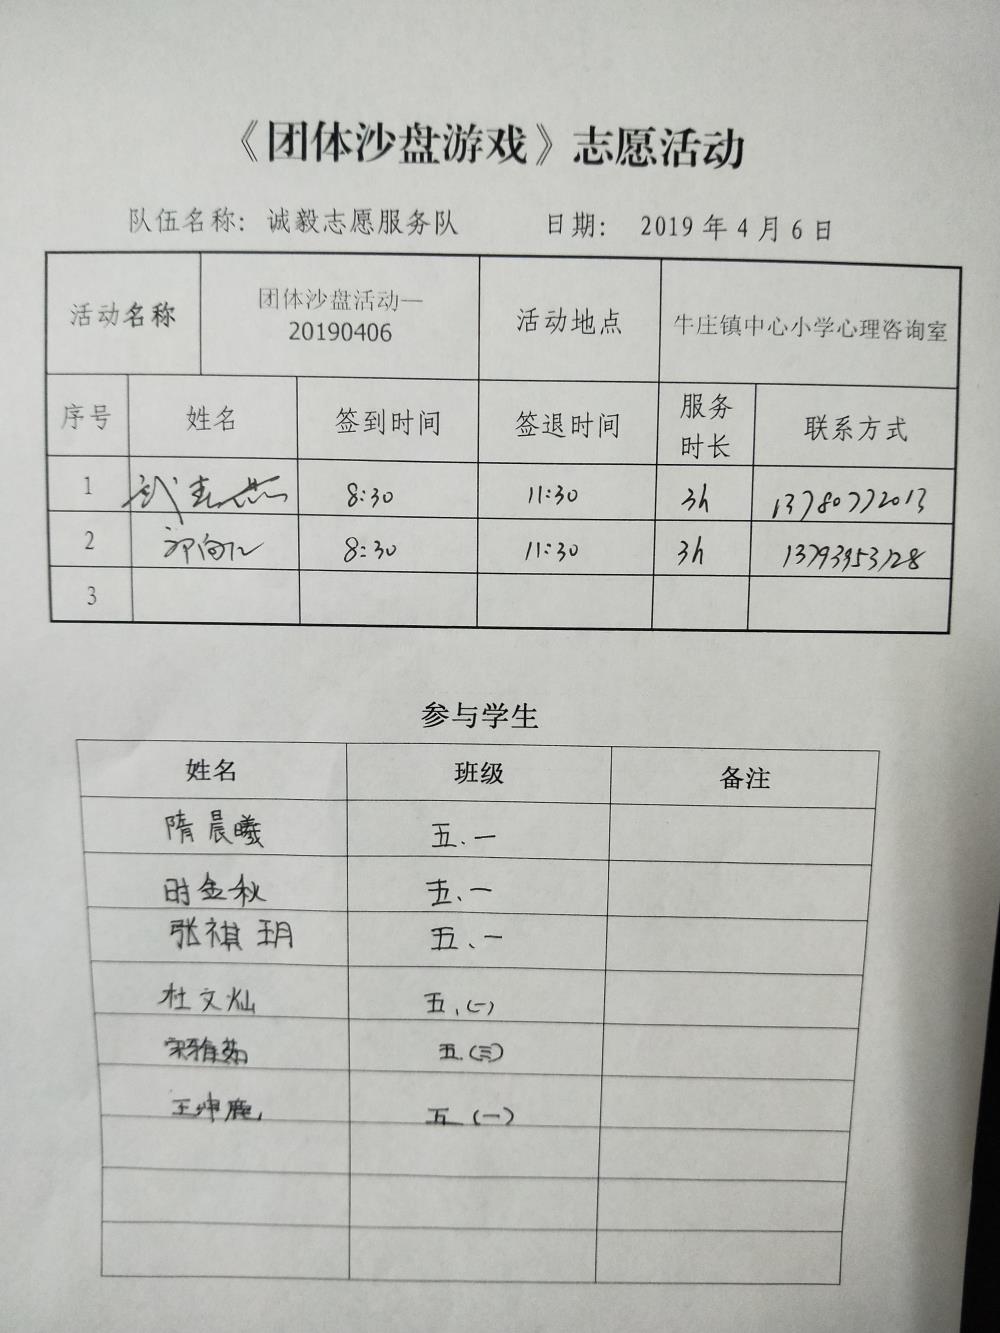 《团体沙盘游戏》志愿活动
队伍名称: 诚毅志愿服务队 日期: 2019年4月6日
活动名称 团体沙盘活动—20190406 活动地点 牛庄镇中心小学心理咨询室
序号 姓名 签到时间 签退时间 服务时长 联系方式
1 8:30 11:30 3h 13780772013
2 8:30 11:30 3h 13793953128
3
参与学生
姓名 班级 备注
隋晨曦 五.一
时金秋 五.一
张祺玥 五、一
杜文灿 五.(一)
宋雅茹 五.(三)
王坤 五(一)